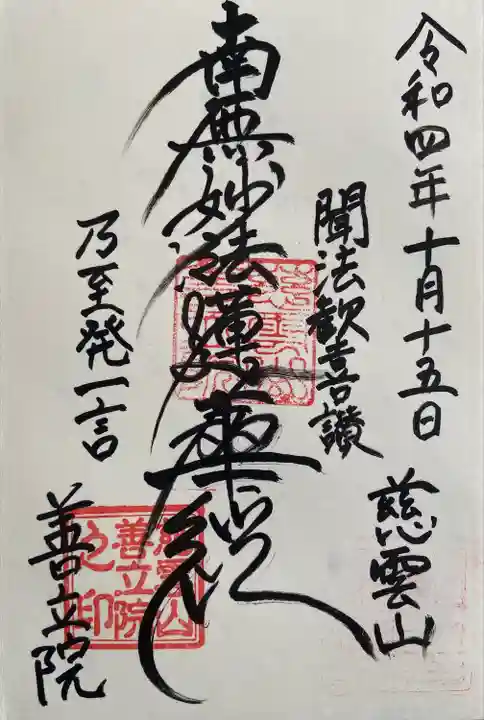 令和四年十月十五日
慈雲山
聞法歓喜讃
南無妙法蓮華経
乃至発一言
善立院
慈雲山
善立院
之印